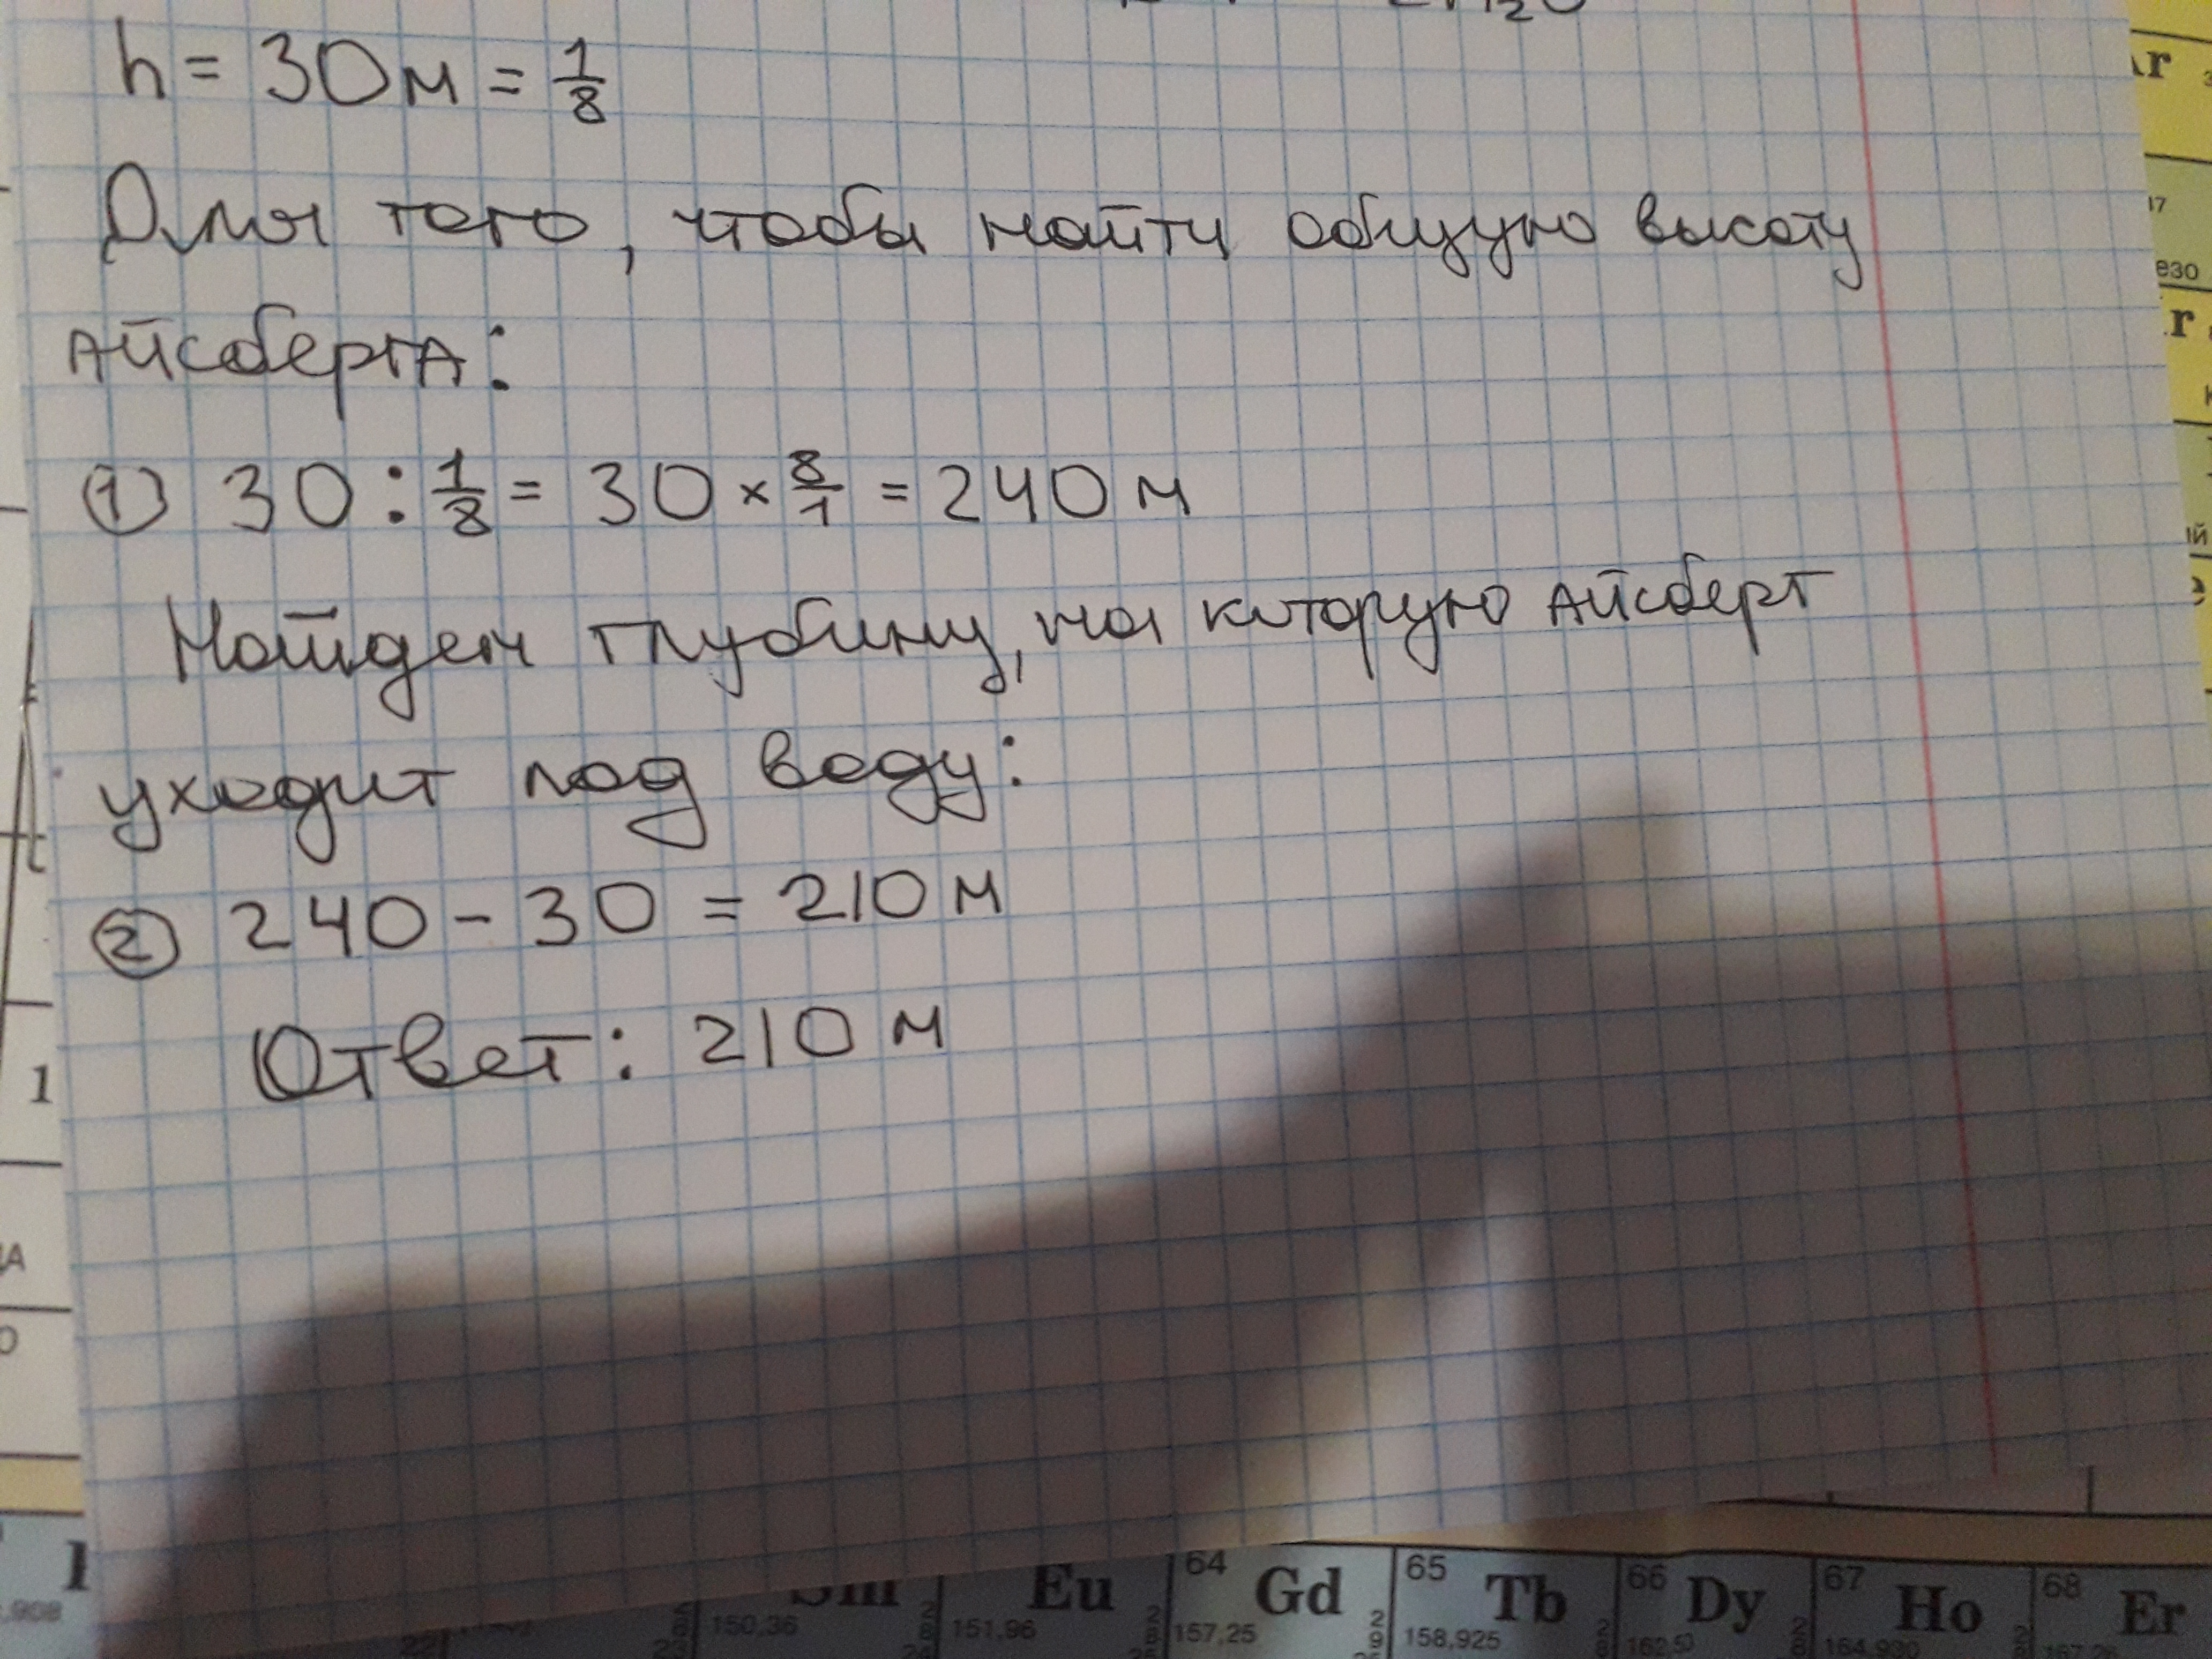 h = 30м = 1/8
Для того, чтобы найти общую высоту
айсберга:
① 30 : 1/8 = 30 × 8/1 = 240 м
Найдем глубину, на которую айсберг
уходит под воду:
② 240 - 30 = 210 м
Ответ: 210 м
1
Eu
151,96
150,36
64 Gd
157,25
65 Tb
158,925
66 Dy
67 Ho
68 Er